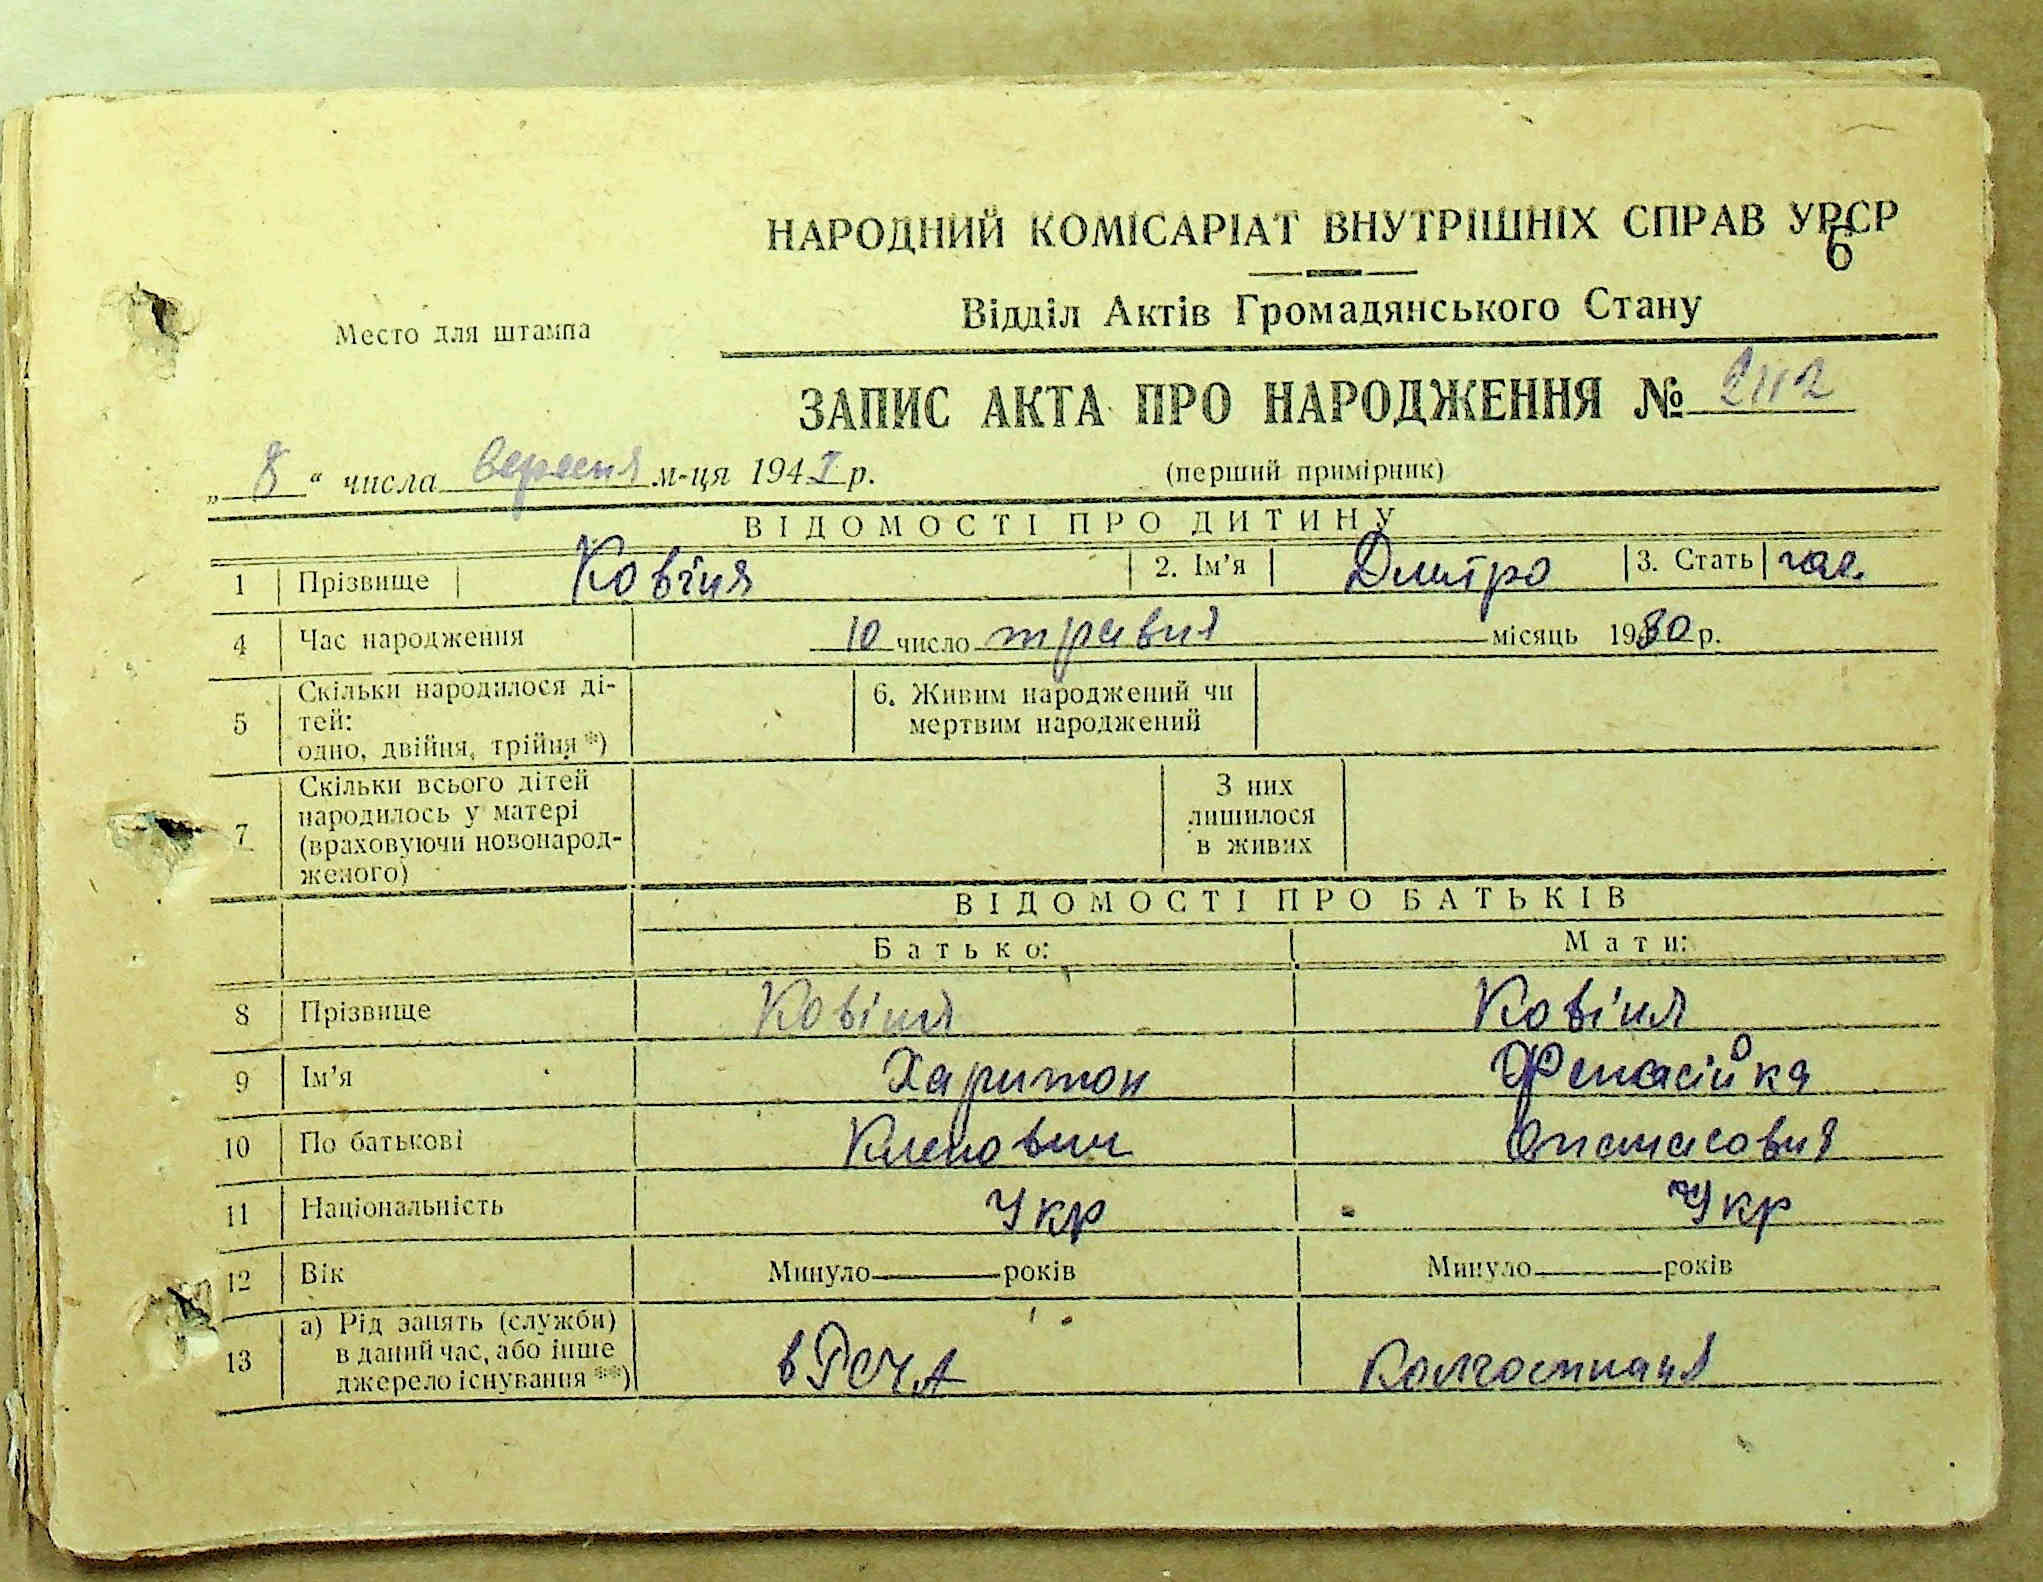 НАРОДНИЙ КОМІСАРІАТ ВНУТРІШНІХ СПРАВ УРСР
6
Відділ Актів Громадянського Стану
Место для штампа
ЗАПИС АКТА ПРО НАРОДЖЕННЯ № 2112
„ 8 “ числа вересня м-ця 1941 р. (перший примірник)
ВІДОМОСТІ ПРО ДИТИНУ
1 Прізвище Ковіня 2. Ім’я Дмитро 3. Стать чол.
4 Час народження 10 число травня місяць 1930 р.
5 Скільки народилося ді-
тей:
одно, двійня, трійня *)
6. Живим народжений чи
мертвим народжений
7 Скільки всього дітей
народилось у матері
(враховуючи новонарод-
женого)
З них
лишилося
в живих
ВІДОМОСТІ ПРО БАТЬКІВ
Батько: Мати:
8 Прізвище Ковіня Ковіня
9 Ім’я Харитон
10 По батькові Опанасовня
11 Національність Укр Укр
12 Вік Минуло років Минуло років
13 а) Рід занять (служби)
в даний час, або інше
джерело існування **)
в РСЧА Колгоспниця